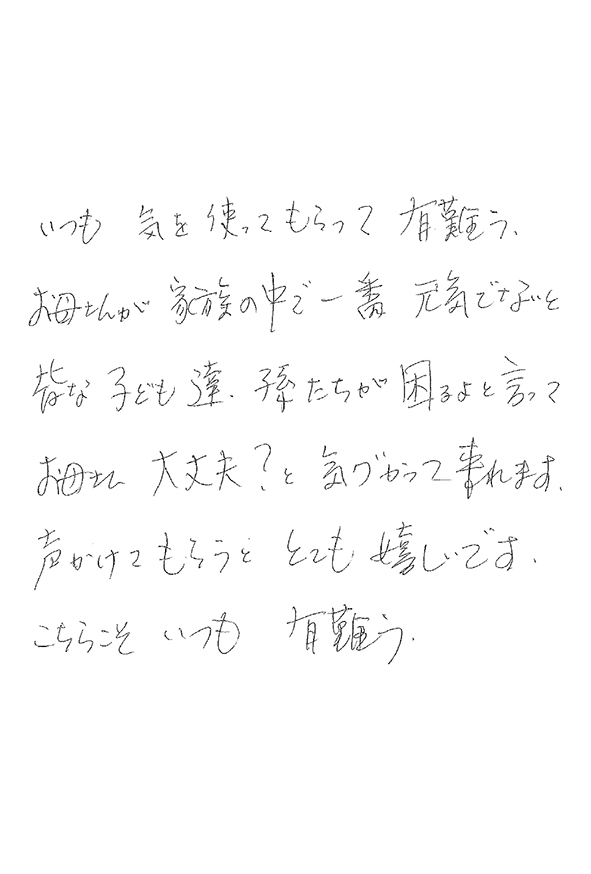 いつも 気を使ってもらって 有難う、
お母さんが 家族の中で一番 元気でないと
皆な子ども達、孫たちが困るよと言って
お母さん 大丈夫?と 気づかって来れます、
声かけてもらうと とても 嬉しいです、
こちらこそ いつも 有難う、